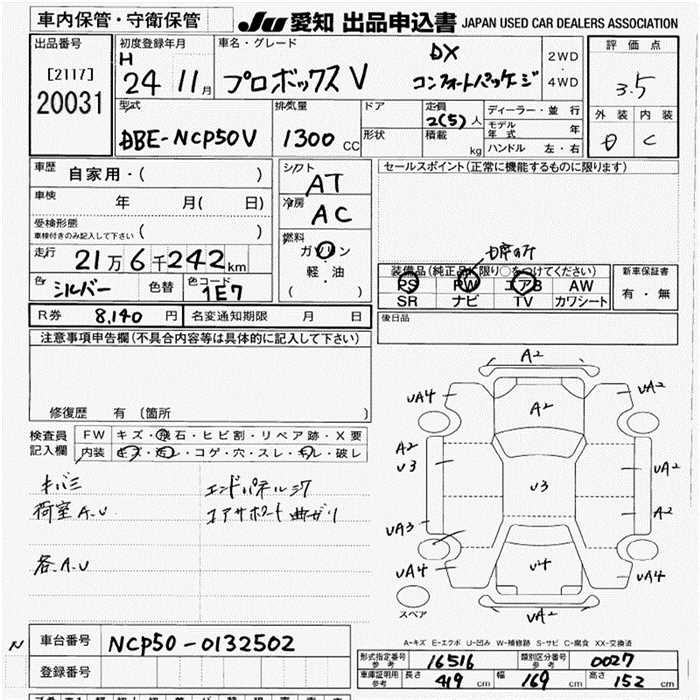 車内保管・守衛保管
JU 愛知 出品申込書 JAPAN USED CAR DEALERS ASSOCIATION
出品番号
[2117]
20031
初度登録年月
H
24 11月
車名・グレード
プロボックスV
DX
コンフォートパッケージ
2WD
・
4WD
評価点
3.5
外装 内装
C
型式
DBE-NCP50V
排気量
1300 CC
ドア
形状
定員
2(5)人
積載
kg
ディーラー・並行
モデル年式 年
ハンドル 左・右
車歴
自家用・( )
車検
年 月( 日)
受検形態
車検付きのみ記入して下さい ( )
走行
21万6千242km
色
シルバー
色替
色コード
1E7
シフト
AT
冷房
AC
燃料
ガソリン
軽・油
( )
セールスポイント(正常に機能するものに限ります)
装備品(純正品に限り○をつけてください)
PS PW エアB AW
SR ナビ TV カワシート
新車保証書
有・無
R券 8,140円
名変通知期限 月 日
後日品
注意事項申告欄(不具合内容等は具体的に記入して下さい)
修復歴 有(箇所 )
検査員
記入欄
FW キズ・飛石・ヒビ割・リペア跡・X要
内装 キズ・汚レ・コゲ・穴・スレ・キレ・破レ
キバミ
荷室A.U
各A.U
エンドパネルシワ
コアサポート曲ガリ
A2
UA4
A2
UA2
A2
U3
U3
UA2
A2
UA3
UA4
U4
UA4
UA2
スペア
A-キズ E-エクボ U-凹み W-補修跡 S-サビ C-腐食 XX-交換済
N
車台番号 NCP50-0132502
登録番号
形式指定番号
参考
16516
類別区分番号
参考
0027
車庫証明用
参考
長さ 419 cm 幅 169 cm 高さ 152 cm